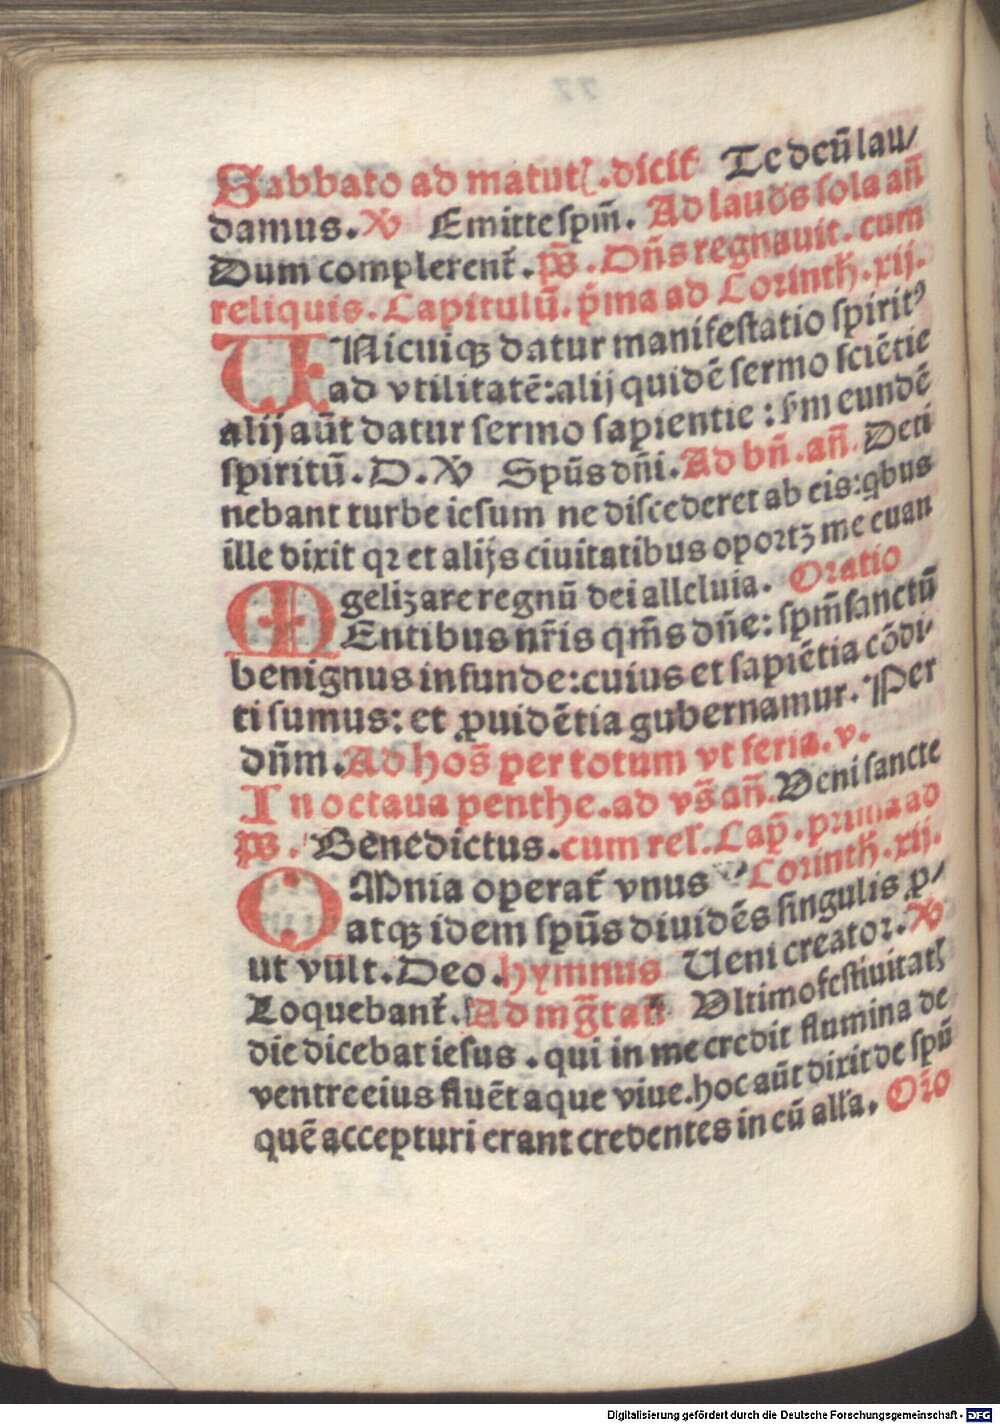 Sabbato ad matutꝭ. dicit̃ Te deũ lau/
damus. ℣ Emitte spm̃. Ad laud̃s sola añ
Dum complerent̃. p̃s. Dñs regnauit. cum
reliquis. Capitulũ. p̃ma ad Corinth̃. xij.
UNicuiqꝫ datur manifestatio spiritꝰ
ad vtilitatẽ: alij quidẽ sermo sciẽtie
alij aũt datur sermo sapientie: s̃m eundẽ
spiritũ. D. ℣ Spũs dñi. Ad bñ. añ. Deti
nebant turbe iesum ne discederet ab eis: qbus
ille dixit qꝛ et alijs ciuitatibus oportꝫ me euan
gelizare regnũ dei alleluia. Oratio
MEntibus nr̃is qm̃s dñe: spm̃ sanctũ
benignus infunde: cuius et sapiẽtia cõdi-
ti sumus: et ꝓuidẽtia gubernamur. Per
dñm. Ad hos̃ per totum vt feria. v.
In octaua penthe. ad vs̃ añ. Veni sancte
p̃s. Benedictus. cum rel̃. Cap̃. prima ad
Corinth̃. xij.
OMnia operat̃ vnus
atqꝫ idem spũs diuidẽs singulis ꝓ/
ut vult. Deo. hymnus Ueni creator. ℣
Loquebant̃. Ad mg̃tañ Vltimo festiuitatꝭ
die dicebat iesus. qui in me credit flumina de
ventre eius fluẽt aque viue. hoc aũt dixit de spũ
quẽ accepturi erant credentes in eũ alľa. Oĩo
77
Digitalisierung gefördert durch die Deutsche Forschungsgemeinschaft - DFG